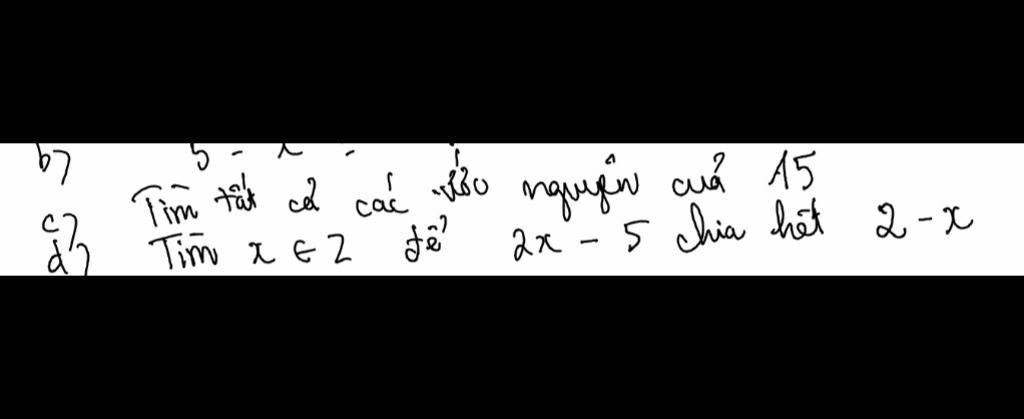 b) 5 - x =
c) Tìm tất cả các ước nguyên của 15
d) Tìm x ∈ Z để 2x - 5 chia hết 2 - x